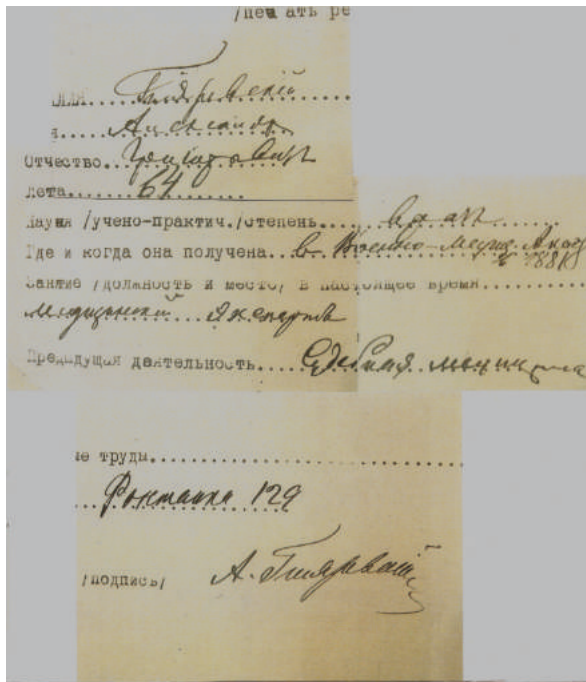 /печать ре
Александр
Отчество.... Григорьевич
лета.... 64
Наука /учено-практич./степень.... врач
Где и когда она получена.... в Военно-Медиц. Акад.
Занятие /должность и место/ в настоящее время.........
медицинский эксперт
Предыдущая деятельность...... Судебная медицина
ые труды..............................
Фонтанка 129
/подпись/ А.